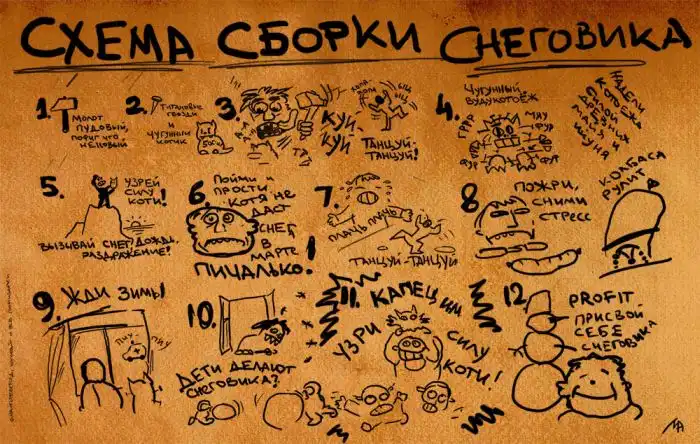 СХЕМА СБОРКИ СНЕГОВИКА
1.
МОЛОТ
ПУДОВЫЙ,
ПОФИГ ЧТО
НЕ НОВЫЙ
2.
ТИТАНОВЫЕ
ГВОЗДИ
И
ЧУГУННЫЙ
КОТИК
3.
КУЙ
КУЙ
ТАНЦУЙ-
ТАНЦУЙ!
4.
ЧУГУННЫЙ
ВУДУКОТОЁЖ
МЯУ
ФУР
5.
УЗРЕЙ
СИЛУ
КОТИ!
ВЫЗЫВАЙ СНЕГ, ДОЖДЬ,
РАЗДРАЖЕНИЕ!
6.
ПОЙМИ И
ПРОСТИ
КОТЯ НЕ
ДАСТ
СНЕГ
В
МАРТЕ
ПИЧАЛЬКО!
7.
ПЛАЧЬ ПЛАЧЬ
ТАНЦУЙ-ТАНЦУЙ
8
ПОЖРИ,
СНИМИ
СТРЕСС
КОЛБАСА
РУЛИТ
9.
ЖДИ ЗИМЫ
ПИУ
ПИУ
10.
ДЕТИ ДЕЛАЮТ
СНЕГОВИКА?
11.
КАПЕЦ ИМ
УЗРИ
СИЛУ
КОТИ!
12
PROFIT-
ПРИСВОЙ
СЕБЕ
СНЕГОВИКА